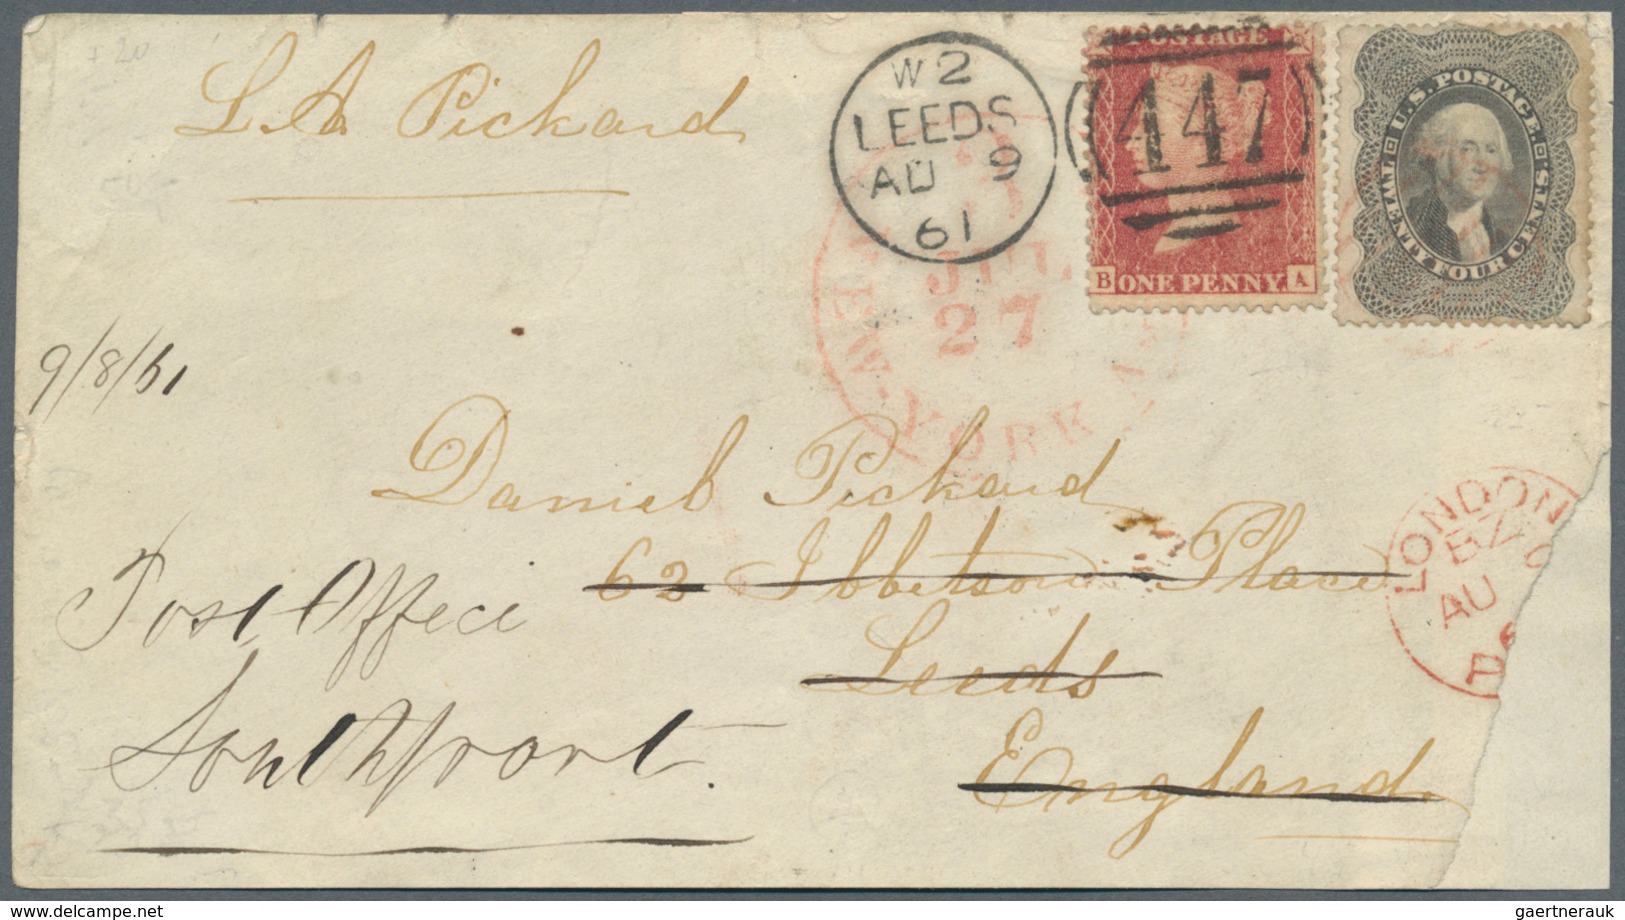 L. A. Pickard
W 2
LEEDS
AU 9
61
447
POSTAGE
B ONE PENNY A
U.S. POSTAGE.
TWENTY FOUR CENTS.
NEW YORK
JUL
27
9/8/61
Daniel Pickard
62 Ibbetson Place
Leeds
England.
Post Office
Southport.
LONDON
AU
delcampe.net
gaertnerauk